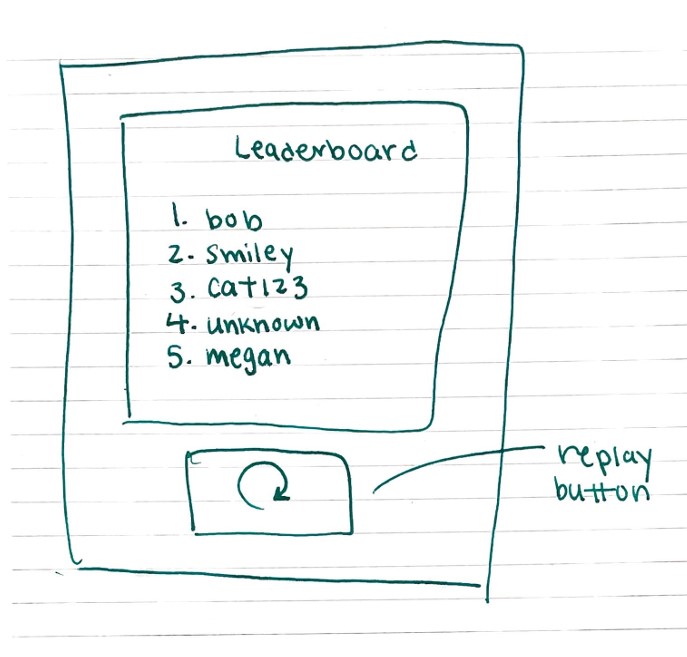 Leaderboard
1. bob
2. smiley
3. cat123
4. unknown
5. megan
replay
button